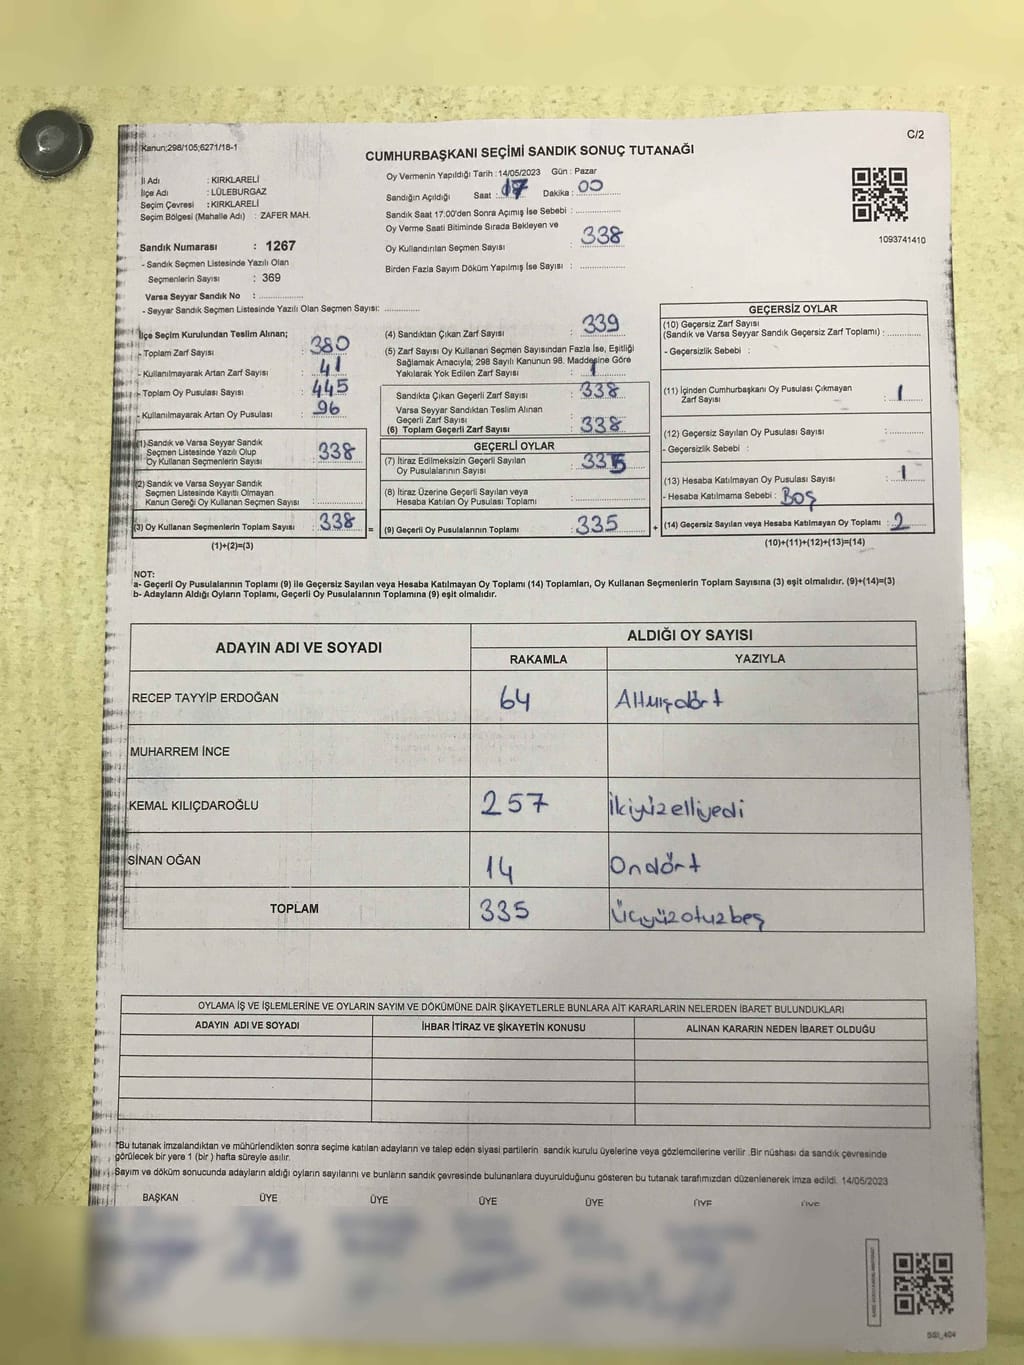 Kanun;298/105;6271/18-1
C/2
CUMHURBAŞKANI SEÇİMİ SANDIK SONUÇ TUTANAĞI
İl Adı : KIRKLARELİ
İlçe Adı : LÜLEBURGAZ
Seçim Çevresi : KIRKLARELİ
Seçim Bölgesi (Mahalle Adı) : ZAFER MAH.
Sandık Numarası : 1267
- Sandık Seçmen Listesinde Yazılı Olan
Seçmenlerin Sayısı : 369
Varsa Seyyar Sandık No : ..................
- Seyyar Sandık Seçmen Listesinde Yazılı Olan Seçmen Sayısı: ...............
Oy Vermenin Yapıldığı Tarih : 14/05/2023 Gün : Pazar
Sandığın Açıldığı Saat : 17 Dakika : 00
Sandık Saat 17:00'den Sonra Açımış İse Sebebi : ...............
Oy Verme Saati Bitiminde Sırada Bekleyen ve
Oy Kullandırılan Seçmen Sayısı : 338
Birden Fazla Sayım Döküm Yapılmış İse Sayısı : ...............
1093741410
İlçe Seçim Kurulundan Teslim Alınan;
- Toplam Zarf Sayısı : 380
- Kullanılmayarak Artan Zarf Sayısı : 41
- Toplam Oy Pusulası Sayısı : 445
- Kullanılmayarak Artan Oy Pusulası : 96
(1) Sandık ve Varsa Seyyar Sandık
Seçmen Listesinde Yazılı Olup
Oy Kullanan Seçmenlerin Sayısı : 338
(2) Sandık ve Varsa Seyyar Sandık
Seçmen Listesinde Kayıtlı Olmayan
Kanun Gereği Oy Kullanan Seçmen Sayısı : ............
(3) Oy Kullanan Seçmenlerin Toplam Sayısı : 338 =
(1)+(2)=(3)
(4) Sandıktan Çıkan Zarf Sayısı : 339
(5) Zarf Sayısı Oy Kullanan Seçmen Sayısından Fazla İse, Eşitliği
Sağlamak Amacıyla; 298 Sayılı Kanunun 98. Maddesine Göre
Yakılarak Yok Edilen Zarf Sayısı : 1
Sandıkta Çıkan Geçerli Zarf Sayısı : 338
Varsa Seyyar Sandıktan Teslim Alınan
Geçerli Zarf Sayısı
(6) Toplam Geçerli Zarf Sayısı : 338
GEÇERLİ OYLAR
(7) İtiraz Edilmeksizin Geçerli Sayılan
Oy Pusulalarının Sayısı : 335
(8) İtiraz Üzerine Geçerli Sayılan veya
Hesaba Katılan Oy Pusulası Toplamı : ...............
(9) Geçerli Oy Pusulalarının Toplamı : 335 +
GEÇERSİZ OYLAR
(10) Geçersiz Zarf Sayısı
(Sandık ve Varsa Seyyar Sandık Geçersiz Zarf Toplamı) : ............
- Geçersizlik Sebebi :
(11) İçinden Cumhurbaşkanı Oy Pusulası Çıkmayan
Zarf Sayısı : 1
(12) Geçersiz Sayılan Oy Pusulası Sayısı : ............
- Geçersizlik Sebebi :
(13) Hesaba Katılmayan Oy Pusulası Sayısı : 1
- Hesaba Katılmama Sebebi : Boş
(14) Geçersiz Sayılan veya Hesaba Katılmayan Oy Toplamı : 2
(10)+(11)+(12)+(13)=(14)
NOT:
a- Geçerli Oy Pusulalarının Toplamı (9) ile Geçersiz Sayılan veya Hesaba Katılmayan Oy Toplamı (14) Toplamları, Oy Kullanan Seçmenlerin Toplam Sayısına (3) eşit olmalıdır. (9)+(14)=(3)
b- Adayların Aldığı Oyların Toplamı, Geçerli Oy Pusulalarının Toplamına (9) eşit olmalıdır.
ADAYIN ADI VE SOYADI ALDIĞI OY SAYISI
RAKAMLA YAZIYLA
RECEP TAYYİP ERDOĞAN 64 Altmışdört
MUHARREM İNCE
KEMAL KILIÇDAROĞLU 257 İkiyüzelliyedi
SİNAN OĞAN 14 Ondört
TOPLAM 335 Üçyüzotuzbeş
OYLAMA İŞ VE İŞLEMLERİNE VE OYLARIN SAYIM VE DÖKÜMÜNE DAİR ŞİKAYETLERLE BUNLARA AİT KARARLARIN NELERDEN İBARET BULUNDUKLARI
ADAYIN ADI VE SOYADI İHBAR İTİRAZ VE ŞİKAYETİN KONUSU ALINAN KARARIN NEDEN İBARET OLDUĞU
*Bu tutanak imzalandıktan ve mühürlendikten sonra seçime katılan adayların ve talep eden siyasi partilerin sandık kurulu üyelerine veya gözlemcilerine verilir .Bir nüshası da sandık çevresinde
görülecek bir yere 1 (bir ) hafta süreyle asılır.
Sayım ve döküm sonucunda adayların aldığı oyların sayılarını ve bunların sandık çevresinde bulunanlara duyurulduğunu gösteren bu tutanak tarafımızdan düzenlenerek imza edildi. 14/05/2023
BAŞKAN ÜYE ÜYE ÜYE ÜYE ÜYE ÜYE
SSI_404